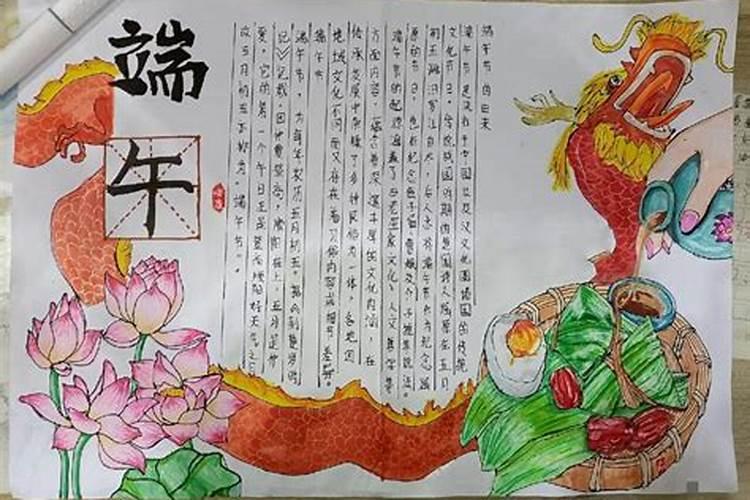 端午
端午节的由来
端午节是流行于中国以及汉文化圈诸国的传统
文化节日，传说战国时期的楚国诗人屈原在五月
初五跳汨罗江自尽，后人亦将端午节作为纪念屈
原的节日，也有纪念伍子胥、曹娥及介子推等说法。
端午节的起源涵盖了古老星象文化、人文哲学等
方面内容，蕴含着深邃丰厚的文化内涵，在
传承发展中杂糅了多种民俗为一体，各地因
地域文化不同而又存在着习俗内容或细节差异。
端午节
端午节，为每年农历五月初五。据《荆楚岁时
记》记载，因仲夏登高，顺阳在上，五月是仲
夏，它的第一个午日正是登高顺阳好天气之日，
故五月初五亦称为“端午节”。